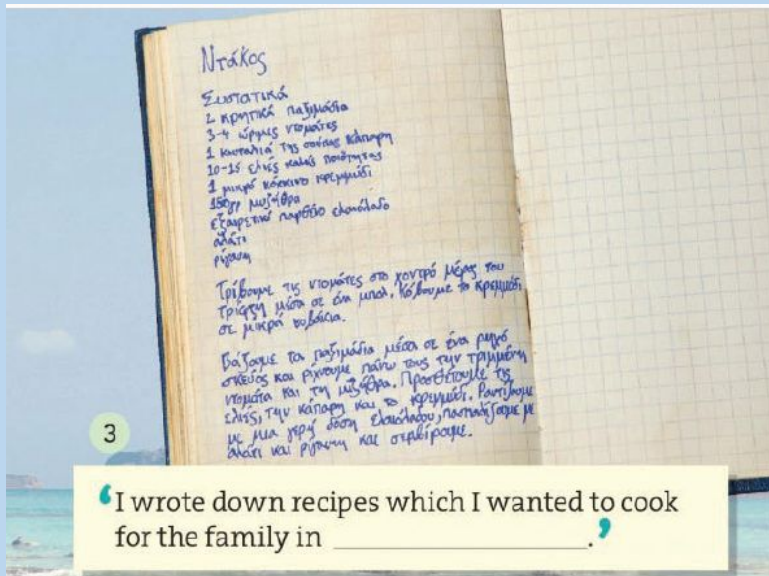 Ντάκος
Συστατικά
2 κρητικά παξιμάδια
3-4 ώριμες ντομάτες
1 κουταλιά της σούπας κάπαρη
10-15 ελιές καλής ποιότητας
1 μικρό κόκκινο κρεμμύδι
150γρ μυζήθρα
εξαιρετικό παρθένο ελαιόλαδο
αλάτι
ρίγανη
Τρίβουμε τις ντομάτες στο χοντρό μέρος του
τρίφτη μέσα σε ένα μπολ. Κόβουμε το κρεμμύδι
σε μικρά κυβάκια.
Βάζουμε τα παξιμάδια μέσα σε ένα ρηχό
σκεύος και ρίχνουμε πάνω τους την τριμμένη
ντομάτα και τη μυζήθρα. Προσθέτουμε τις
ελιές, την κάπαρη και το κρεμμύδι. Ραντίζουμε
με μια γερή δόση ελαιόλαδου, πασπαλίζουμε με
αλάτι και ρίγανη και σερβίρουμε.
3
‘I wrote down recipes which I wanted to cook
for the family in ____________.’